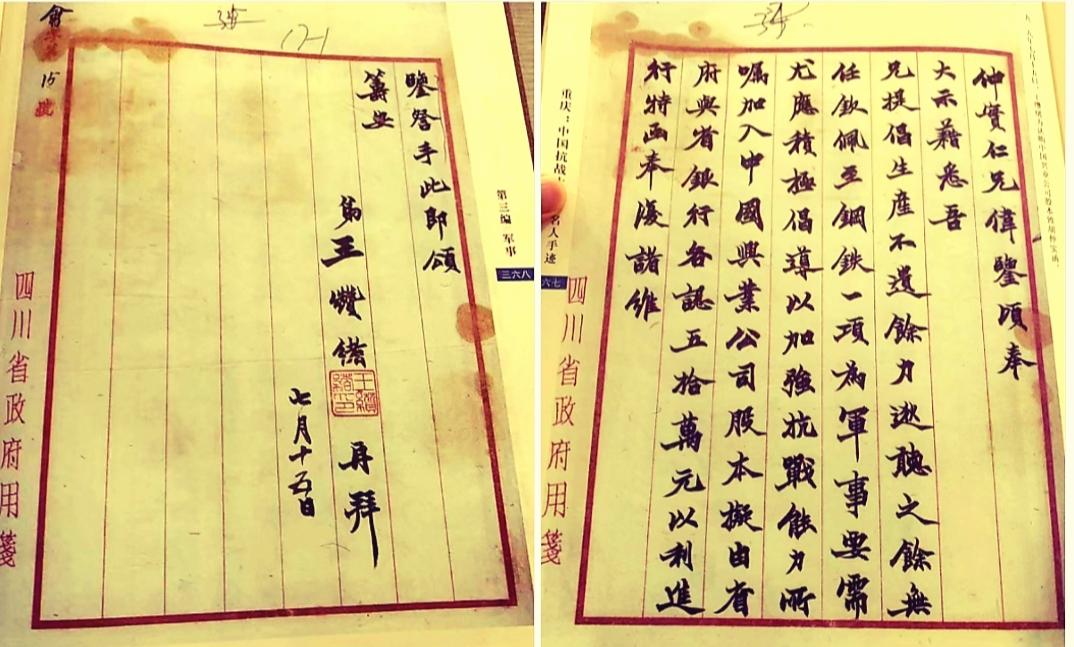 仲實仁兄偉鑒頃奉
大示藉悉吾
兄提倡生產不遺餘力逖聽之餘無
任欽佩至鋼鉄一項為軍事要需
尤應積極倡導以加強抗戰能力所
囑加入中國興業公司股本擬由省
府與省銀行各認五拾萬元以利進
行特函奉復諸維
四川省政府用箋
重庆：中国抗战
名人手迹
六七
鑒詧手此即頌
籌安
弟王纘緒再拜
王纘緒印
七月十五日
四川省政府用箋
第三编 军事
三六八